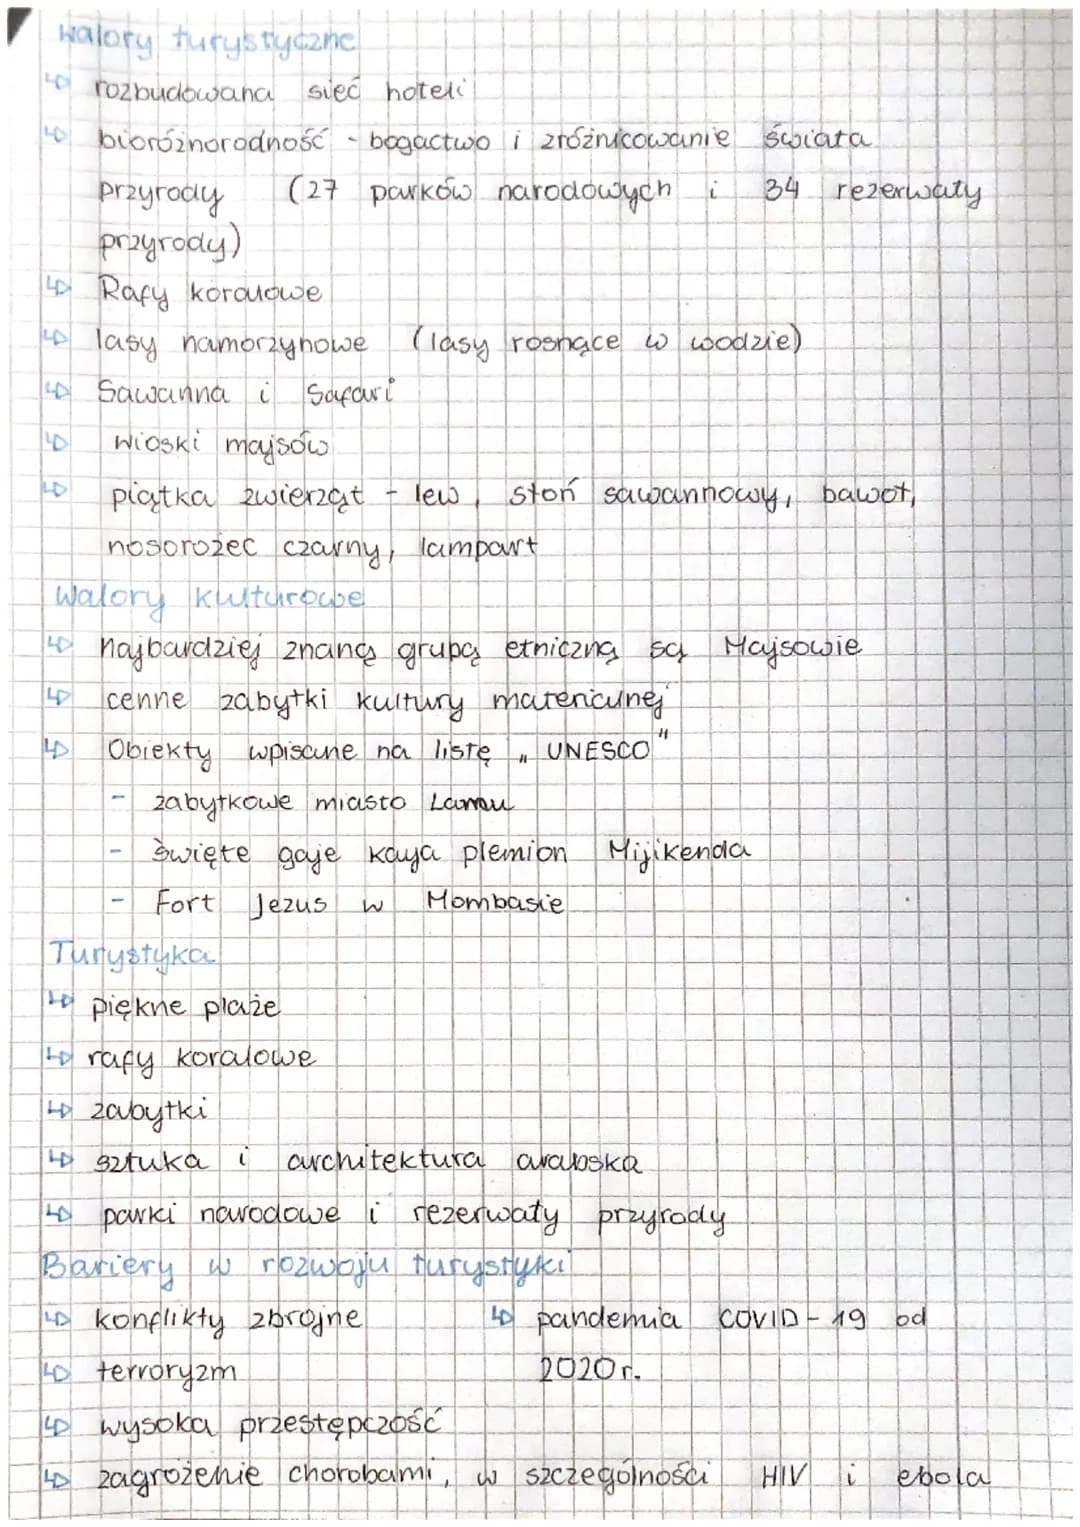 walory turystyczne
rozbudowana sieć hoteli
bioróżnorodność - bogactwo i zróżnicowanie świata
przyrody (27 parków narodowych i 34 rezerwaty
przyrody)
Rafy koralowe
lasy namorzynowe (lasy rosnące w wodzie)
Sawanna i Safari
wioski majsów
piątka zwierząt - lew, słoń sawannowy, bawoł,
nosorożec czarny, lampart
Walory kulturowe
najbardziej znaną grupą etniczną są Majsowie
cenne zabytki kultury materialnej
Obiekty wpisane na listę „UNESCO"
- zabytkowe miasto Lamu
- święte gaje kaya plemion Mijikenda
- Fort Jezus w Mombasie
Turystyka
piękne plaże
rafy koralowe
zabytki
sztuka i architektura arabska
parki narodowe i rezerwaty przyrody
Bariery w rozwoju turystyki
konflikty zbrojne
terroryzm
wysoka przestępczość
zagrożenie chorobami, w szczególności HIV i ebola
pandemia COVID-19 od
2020r.